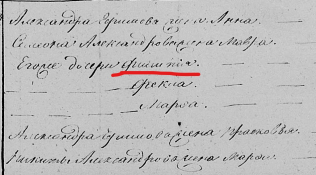 Александра Ефимова жена Анна
Семена Александрова жена Мавра
Его же дочери Фимия
Фекла
Марфа
Александра Ефимова жена Прасковья
Никиты Александрова жена Марфа